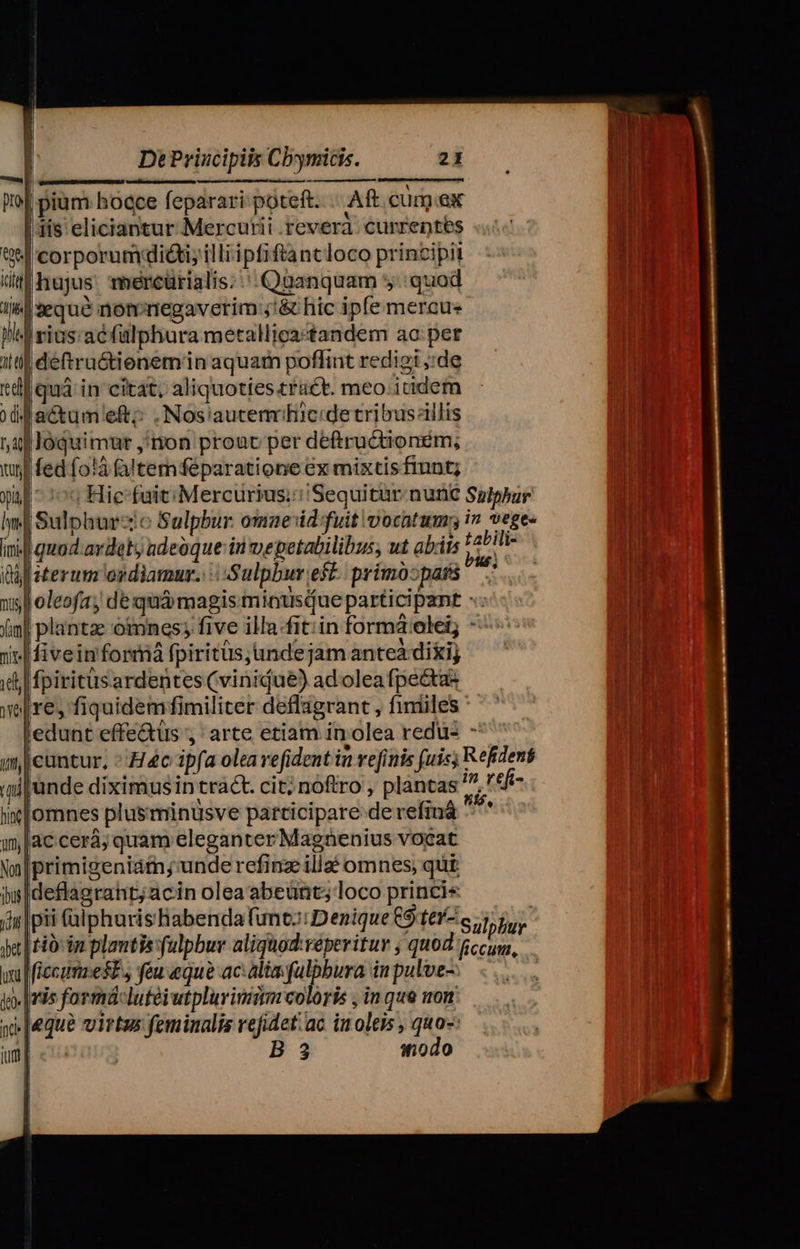 De Principiis Chymicis. 21
pium hocce ſeparari poteſt. Aſt cum ex
iis eliciantur Mercurii reverà currentes
corporum dicti, illi ipſi ſtant loco principii
hujus mercurialis. Quanquam, quod
æquè non negaverim, & hic ipſe mercu-
rius ac ſulphura metallica tandem ac per
deſtructionem in aquam poſſint redigi, de
quâ in citat. aliquoties tract. meo itidem
actum eſt. Nos autem hic de tribus illis
loquimur, non prout per deſtructionem,
ſed ſolâ ſaltem ſeparatione ex mixtis fiunt;
Hic fuit Mercurius. Sequitur nunc
Sulphur in vegetabilibus;
Sulphur. Sulphur omne id fuit vocatum,
quod ardet, adeoque in vegetabilibus, ut abiis
iterum ordiamur. Sulphur eſt primò pars
oleoſa, de quâ magis minusque participant
plantæ omnes, ſive illa fit in formâ olei,
ſive in formâ ſpiritûs, unde jam anteà dixi,
ſpiritûs ardentes (vinique) ad olea ſpecta-
re, ſiquidem ſimiliter deflagrant, ſimiles
edunt effectus, arte etiam in olea redu-
cuntur. Hæc ipſa olea reſident in reſinis ſuis;
Reſident in reſinis.
unde diximus in tract. cit. noſtro, plantas
omnes plus minusve participare de reſinâ
ac cerâ, quam eleganter Magnenius vocat
primigeniam, unde reſinæ illæ omnes, quæ
deflagrant, ac in olea abeunt, loco princi-
pii ſulphuris habenda ſunt. Denique & ter-
Sulphur ſiccum,
tiò in plantis ſulphur aliquod reperitur, quod
ſiccum eſt, ſeu æquè ac alia ſulphura in pulve-
ris formâ lutei utplurimùm coloris, in quo non
æquè virtus ſeminalis reſidet ac in oleis, quo-
B 3 modo